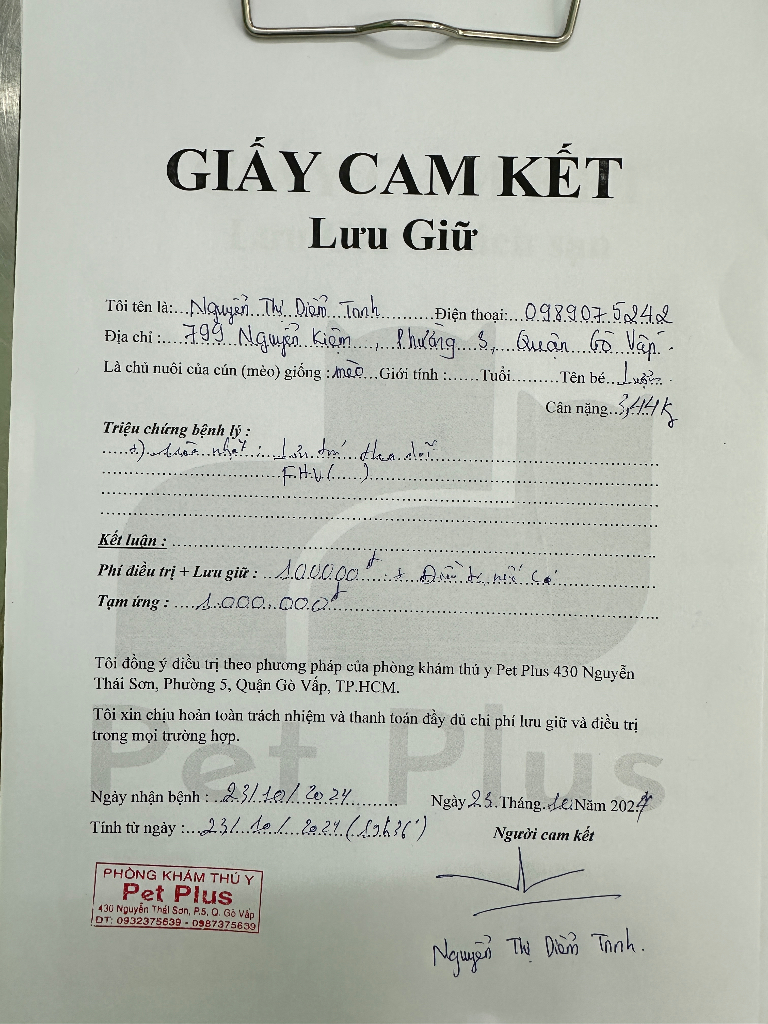 GIẤY CAM KẾT
Lưu Giữ
Tôi tên là:...Nguyễn Thị Diễm Trinh...Điện thoại:...0989075242
Địa chỉ :...799 Nguyễn Kiệm, Phường 3, Quận Gò Vấp.
Là chủ nuôi của cún (mèo) giống : mèo...Giới tính :......Tuổi.........Tên bé
Cân nặng..3,44 kg
Triệu chứng bệnh lý :
lưu trú theo dõi
FHV (......)
Kết luận :
Phí điều trị + Lưu giữ : 100000đ + Điều trị nếu có
Tạm ứng : 1.000.000đ
Tôi đồng ý điều trị theo phương pháp của phòng khám thú y Pet Plus 430 Nguyễn
Thái Sơn, Phường 5, Quận Gò Vấp, TP.HCM.
Tôi xin chịu hoàn toàn trách nhiệm và thanh toán đầy đủ chi phí lưu giữ và điều trị
trong mọi trường hợp.
Pet Plus
Ngày nhận bệnh : 23/10/2024 Ngày 23 Tháng 10 Năm 2024
Tính từ ngày : 23/10/2024 (19h36') Người cam kết
PHÒNG KHÁM THÚ Y
Pet Plus
430 Nguyễn Thái Sơn, P.5, Q. Gò Vấp
ĐT: 0932375639 - 0987375639
Nguyễn Thị Diễm Trinh.